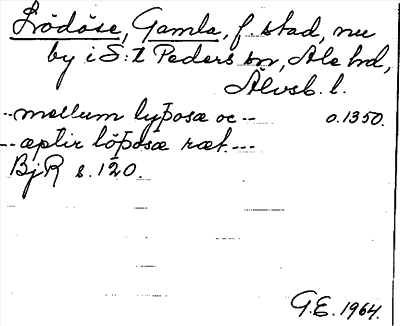 Lödöse, Gamla, f. stad, nu
by i S:t Peders sn, Ale hd,
Älvsb. l.
--mellum lyþosæ oc-- o.1350.
--æptir löþosæ ræt.---
BjR s. 120.
G.E. 1964.